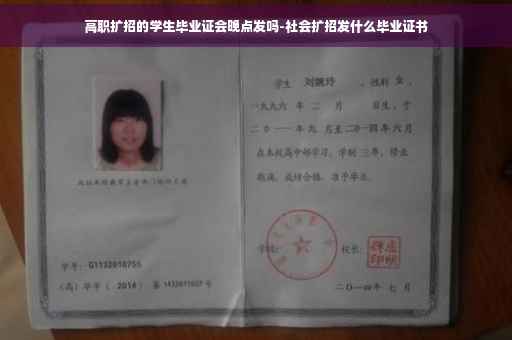 高职扩招的学生毕业证会晚点发吗-社会扩招发什么毕业证书
学生 刘婉玲 ，性别 女 ，
一九九六 年 二 月 日生，于
二0一一 年 九 月至二0一四 年 六 月
在本校高中部学习，学制 三 年，修业
期满，成绩合格，准予毕业。
学校：
校长：
学号：G1132010755
（高）毕字（ 2014 ）第 1432011027 号
二〇一四年 七 月